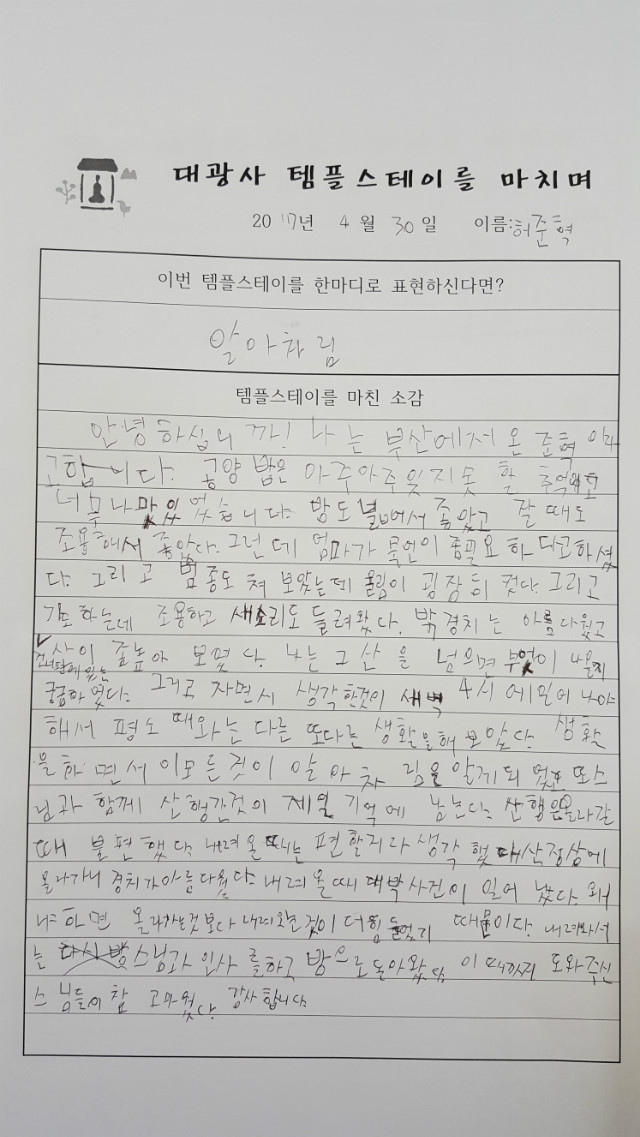 대광사 템플스테이를 마치며
2017년 4월 30일 이름:허준혁
이번 템플스테이를 한마디로 표현하신다면?
알아차림
템플스테이를 마친 소감
안녕하십니까! 나는 부산에서 온 준혁이라
고합니다. 공양 밥은 아주아주잊지못 할 추억이고
너무나 맛있었습니다. 방도 넓어서 좋았고 잘 때도
조용해서 좋았다. 그런데 엄마가 묵언이 중필요 하다고하셨
다. 그리고 범종도 쳐 보았는데 울림이 굉장히 컸다. 그리고
기도 하는데 조용하고 새소리도 들려왔다. 밖 경치는 아름다웠고
건너편에 있는 산이 높아 보였다. 나는 그 산을 넘으면 무엇이 나올지
궁금하였다. 그리고 자면서 생각한것이 새벽 4시에 일어나야
해서 평소 때와는 다른 또다른 생활을해 보았다. 생활
을하면서 이모든것이 알아차림을 알게되었고 또스
님과 함께 산행간것이 제일 기억에 남는다. 산행은올라갈
때 불편했다. 내려올때는 편할거라 생각했다. 산정상에
올라가니 경치가아름다웠다. 내려올때 대박사건이 일어났다. 왜
냐하면 올라가는것보다 내려오는것이 더힘들었기 때문이다. 내려와서
는 스님과 인사를하고 방으로돌아왔다. 이때까지 도와주신
스님들이참 고마웠다. 감사합니다